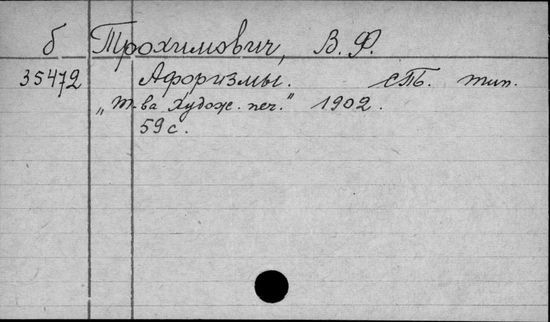 б Трохимович, В. Ф.
35472 Афоризмы. СПб. тип.
„Т-ва худож. печ." 1902.
59 с.